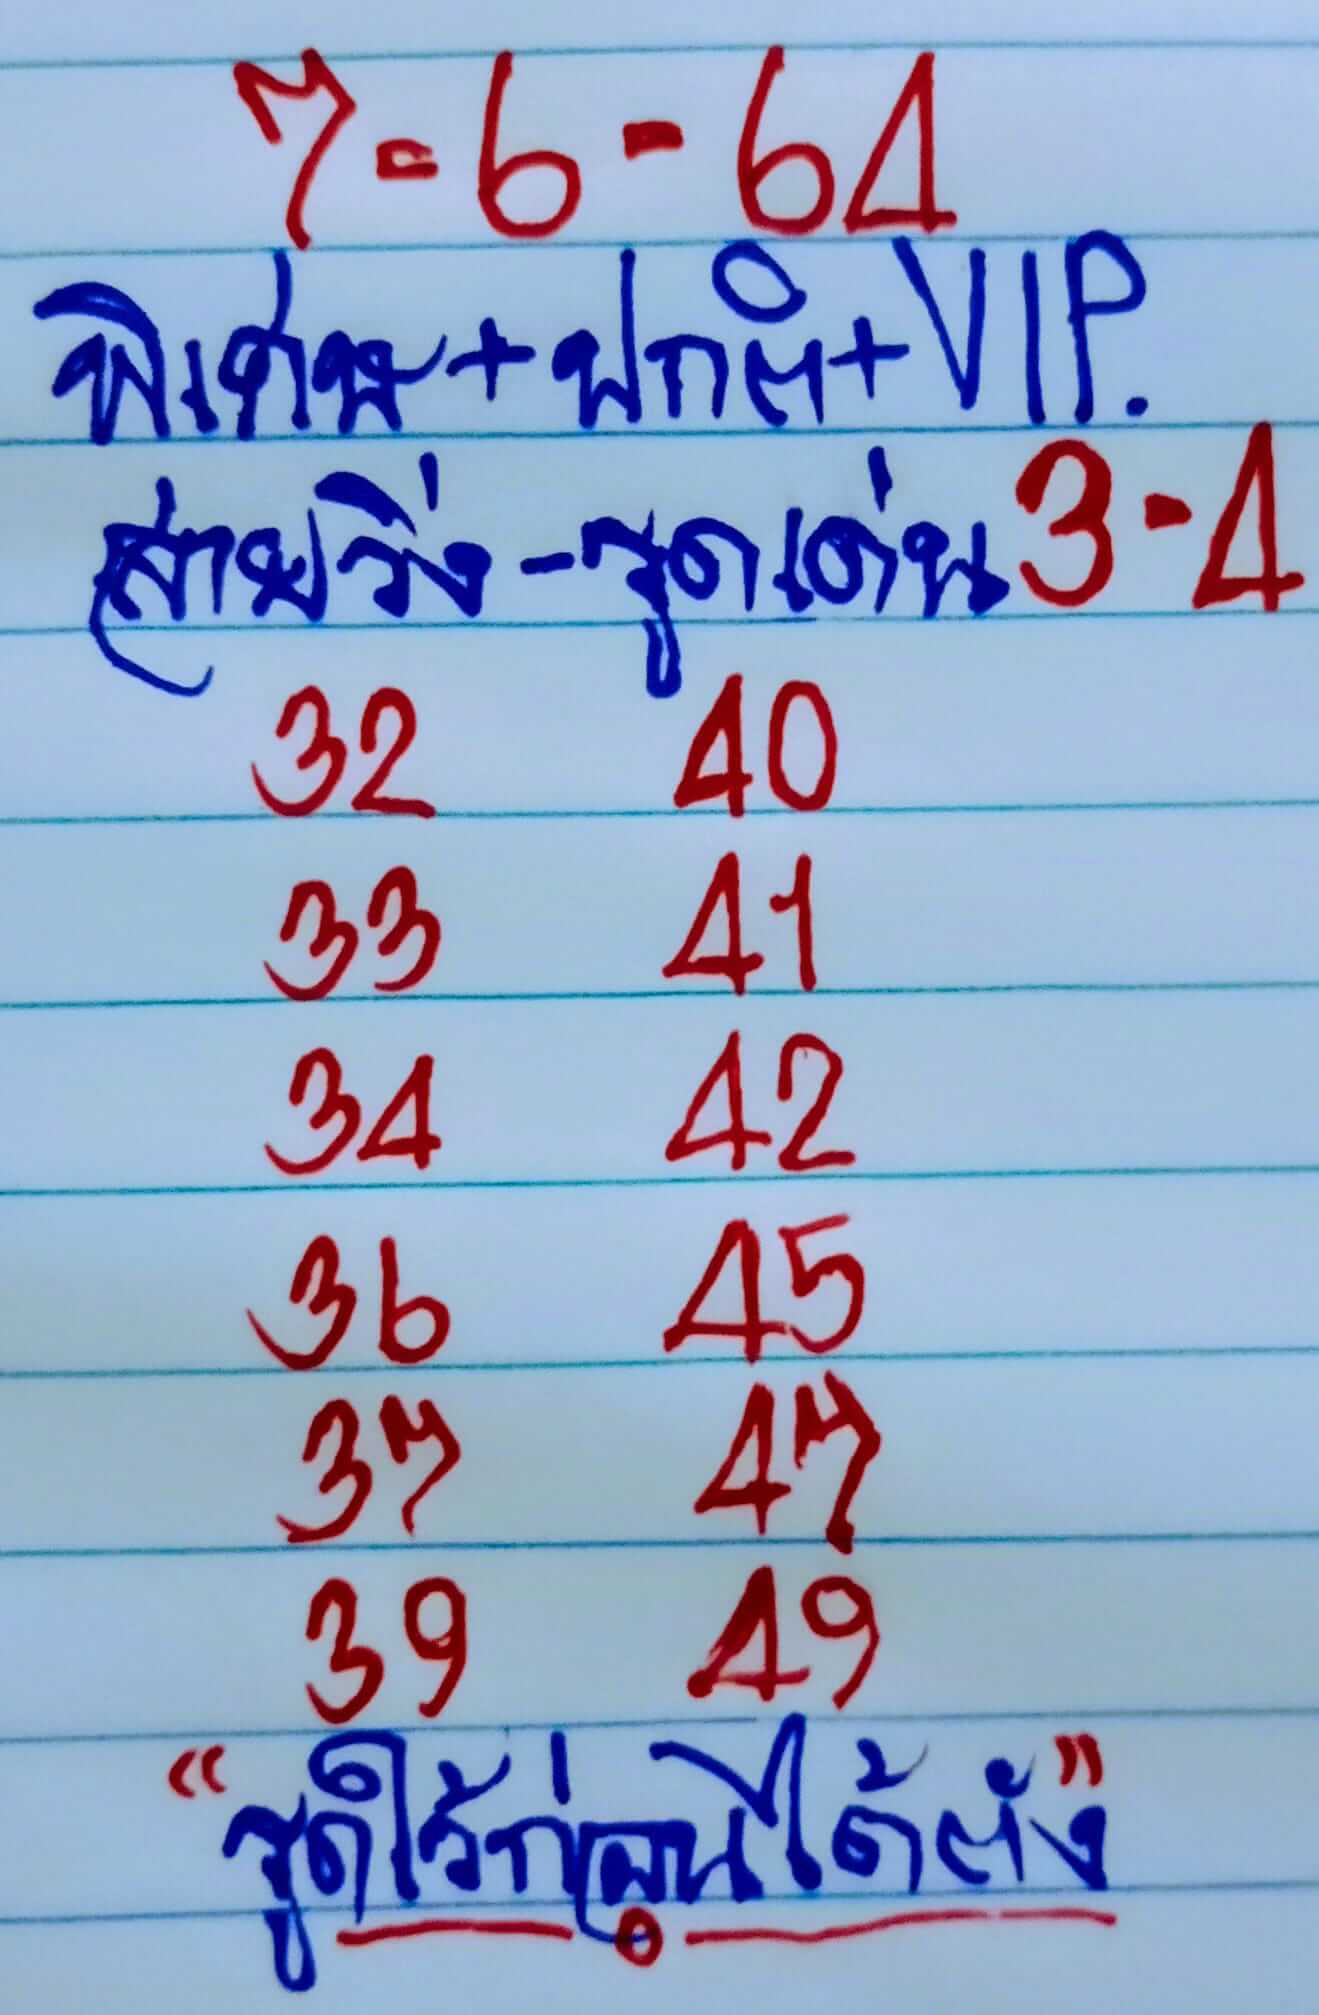 7-6-64
พิเศษ+ปกติ+VIP.
สายวิ่ง-ชุดเด่น 3-4
32 40
33 41
34 42
36 45
37 47
39 49
"ชุดไว้ก่อนได้ตัง"